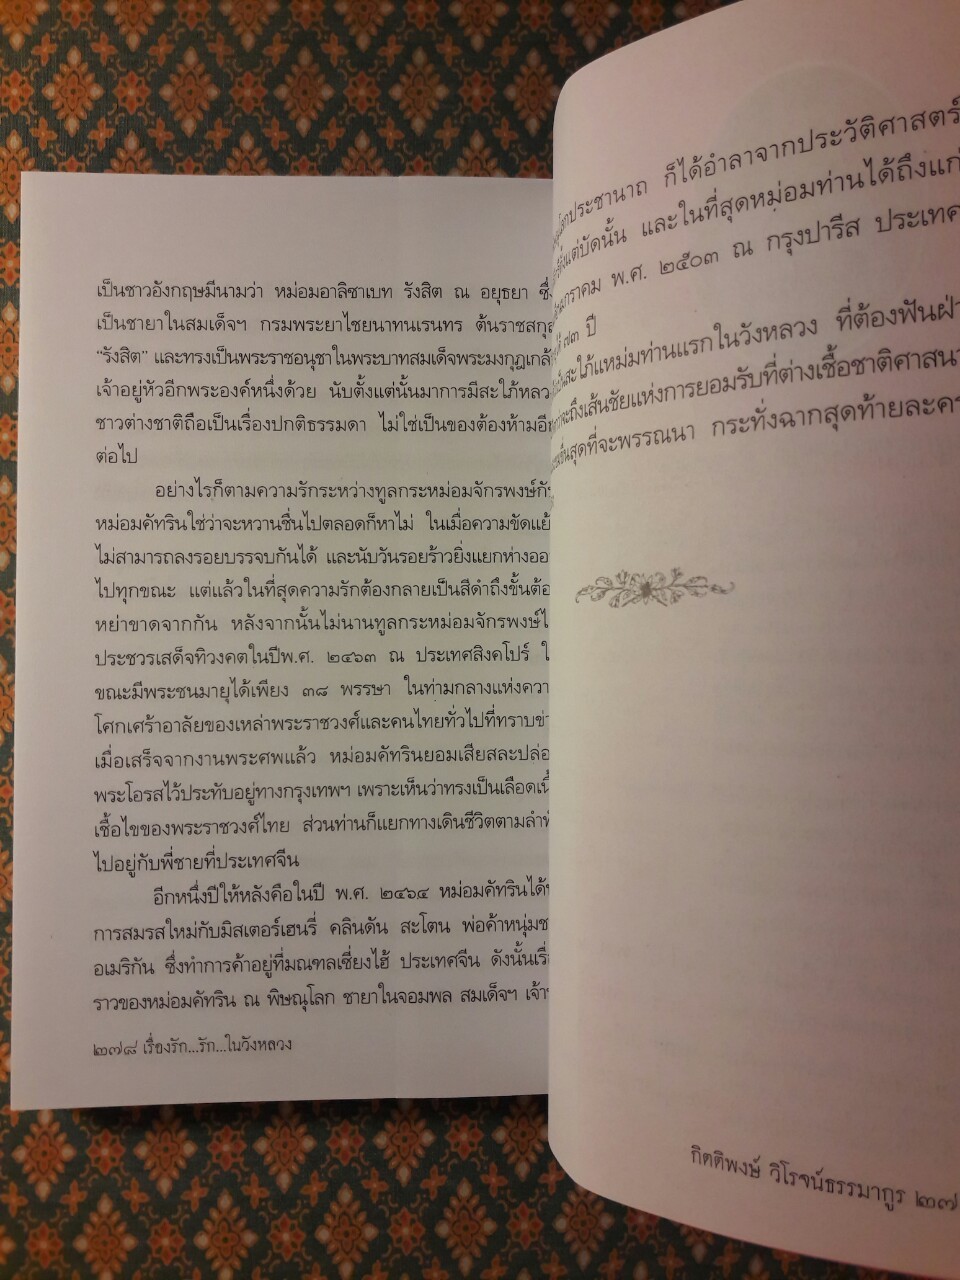 เป็นชาวอังกฤษมีนามว่า หม่อมอาลิซาเบท รังสิต ณ อยุธยา ซึ่ง
เป็นชายาในสมเด็จฯ กรมพระยาไชยนาทนเรนทร ต้นราชสกุล
“รังสิต” และทรงเป็นพระราชอนุชาในพระบาทสมเด็จพระมงกุฎเกล้า
เจ้าอยู่หัวอีกพระองค์หนึ่งด้วย นับตั้งแต่นั้นมาการมีสะใภ้หลวง
ชาวต่างชาติถือเป็นเรื่องปกติธรรมดา ไม่ใช่เป็นของต้องห้ามอีก
ต่อไป
อย่างไรก็ตามความรักระหว่างทูลกระหม่อมจักรพงษ์กับ
หม่อมคัทรินใช่ว่าจะหวานชื่นไปตลอดก็หาไม่ ในเมื่อความขัดแย้
ไม่สามารถลงรอยบรรจบกันได้ และนับวันรอยร้าวยิ่งแยกห่างออ
ไปทุกขณะ แต่แล้วในที่สุดความรักต้องกลายเป็นสีดำถึงขั้นต้อ
หย่าขาดจากกัน หลังจากนั้นไม่นานทูลกระหม่อมจักรพงษ์ไ
ประชวรเสด็จทิวงคตในปีพ.ศ. ๒๔๖๓ ณ ประเทศสิงคโปร์ ใ
ขณะมีพระชนมายุได้เพียง ๓๘ พรรษา ในท่ามกลางแห่งควา
โศกเศร้าอาลัยของเหล่าพระราชวงศ์และคนไทยทั่วไปที่ทราบข่า
เมื่อเสร็จจากงานพระศพแล้ว หม่อมคัทรินยอมเสียสละปล่อ
พระโอรสไว้ประทับอยู่ทางกรุงเทพฯ เพราะเห็นว่าทรงเป็นเลือดเนื้
เชื้อไขของพระราชวงศ์ไทย ส่วนท่านก็แยกทางเดินชีวิตตามลำพั
ไปอยู่กับพี่ชายที่ประเทศจีน
อีกหนึ่งปีให้หลังคือในปี พ.ศ. ๒๔๖๔ หม่อมคัทรินได้
การสมรสใหม่กับมิสเตอร์เฮนรี่ คลินดัน สะโตน พ่อค้าหนุ่มช
อเมริกัน ซึ่งทำการค้าอยู่ที่มณฑลเซี่ยงไฮ้ ประเทศจีน ดังนั้นเรื่
ราวของหม่อมคัทริน ณ พิษณุโลก ชายาในจอมพล สมเด็จฯ เจ้า
๒๗๘ เรื่องรัก...รัก...ในวังหลวง
โลกประชานาถ ก็ได้อำลาจากประวัติศาสตร์
ตั้งแต่บัดนั้น และในที่สุดหม่อมท่านได้ถึงแก่
มกราคม พ.ศ. ๒๕๐๓ ณ กรุงปารีส ประเทศ
๗๓ ปี
สะใภ้แหม่มท่านแรกในวังหลวง ที่ต้องฟันฝ่า
จะถึงเส้นชัยแห่งการยอมรับที่ต่างเชื้อชาติศาสนา
สุดที่จะพรรณนา กระทั่งฉากสุดท้ายละคร
กิตติพงษ์ วิโรจน์ธรรมากูร ๒๗